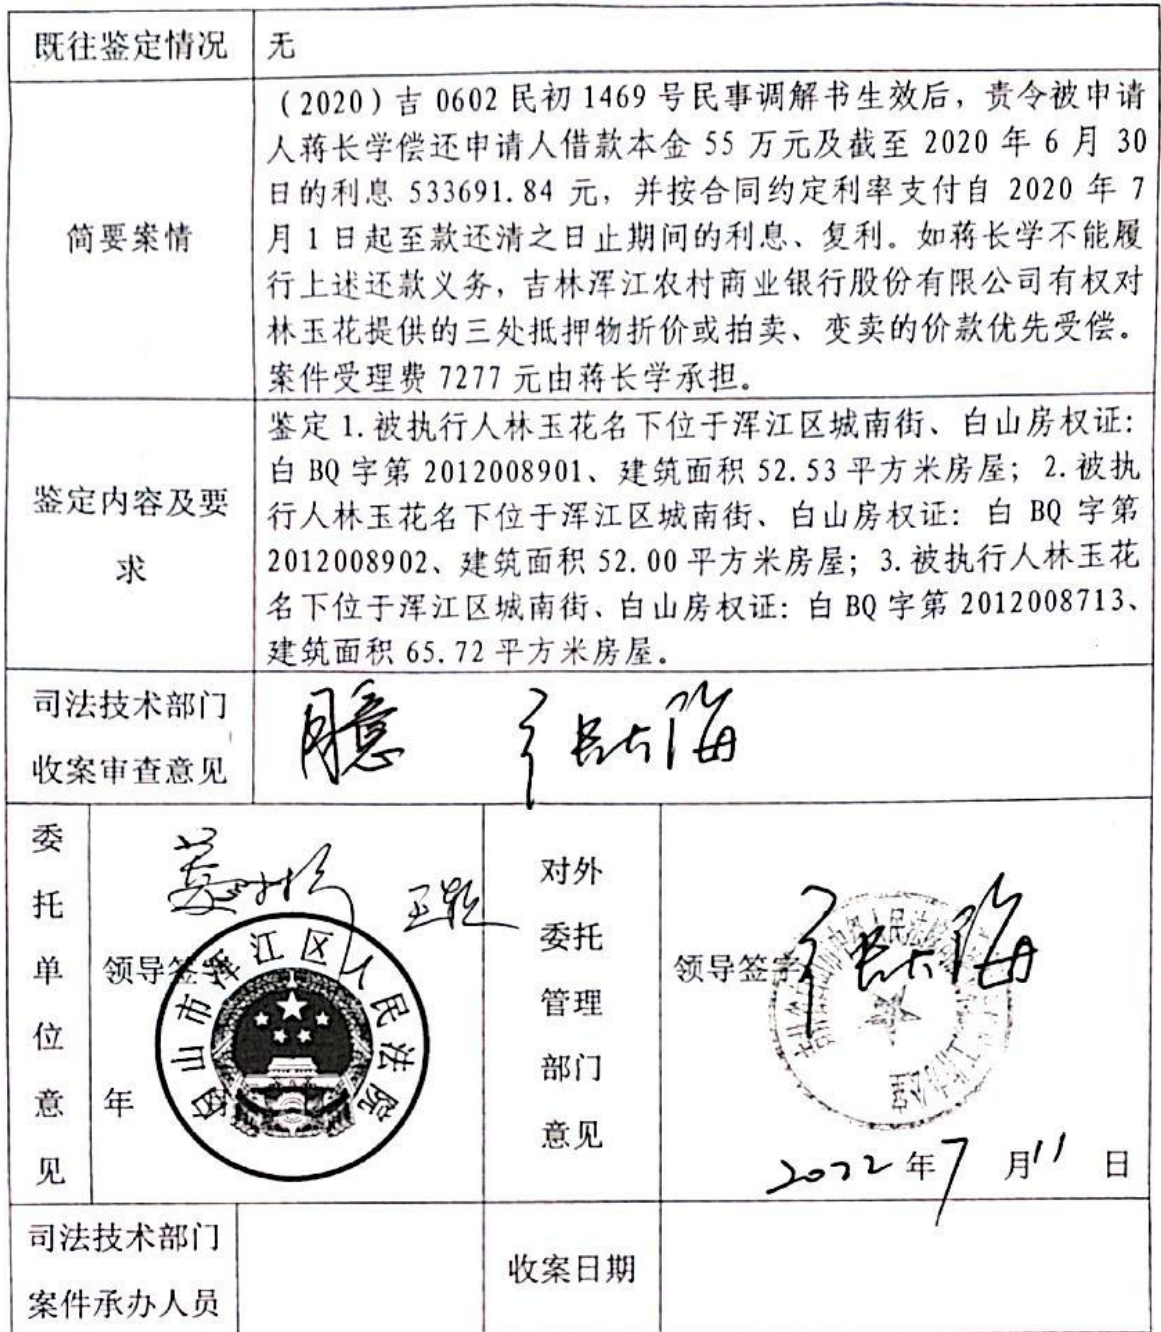 既往鉴定情况
无
简要案情
（2020）吉 0602 民初 1469 号民事调解书生效后，责令被申请
人蒋长学偿还申请人借款本金 55 万元及截至 2020 年 6 月 30
日的利息 533691.84 元，并按合同约定利率支付自 2020 年 7
月 1 日起至款还清之日止期间的利息、复利。如蒋长学不能履
行上述还款义务，吉林浑江农村商业银行股份有限公司有权对
林玉花提供的三处抵押物折价或拍卖、变卖的价款优先受偿。
案件受理费 7277 元由蒋长学承担。
鉴定内容及要
求
鉴定 1.被执行人林玉花名下位于浑江区城南街、白山房权证：
白 BQ 字第 2012008901、建筑面积 52.53 平方米房屋；2.被执
行人林玉花名下位于浑江区城南街、白山房权证：白 BQ 字第
2012008902、建筑面积 52.00 平方米房屋；3.被执行人林玉花
名下位于浑江区城南街、白山房权证：白 BQ 字第 2012008713、
建筑面积 65.72 平方米房屋。
司法技术部门
收案审查意见
委
托
单
位
意
见
领导签字
年
白山市浑江区人民法院
对外
委托
管理
部门
意见
领导签字
2022 年 7 月 11 日
司法技术部门
案件承办人员
收案日期